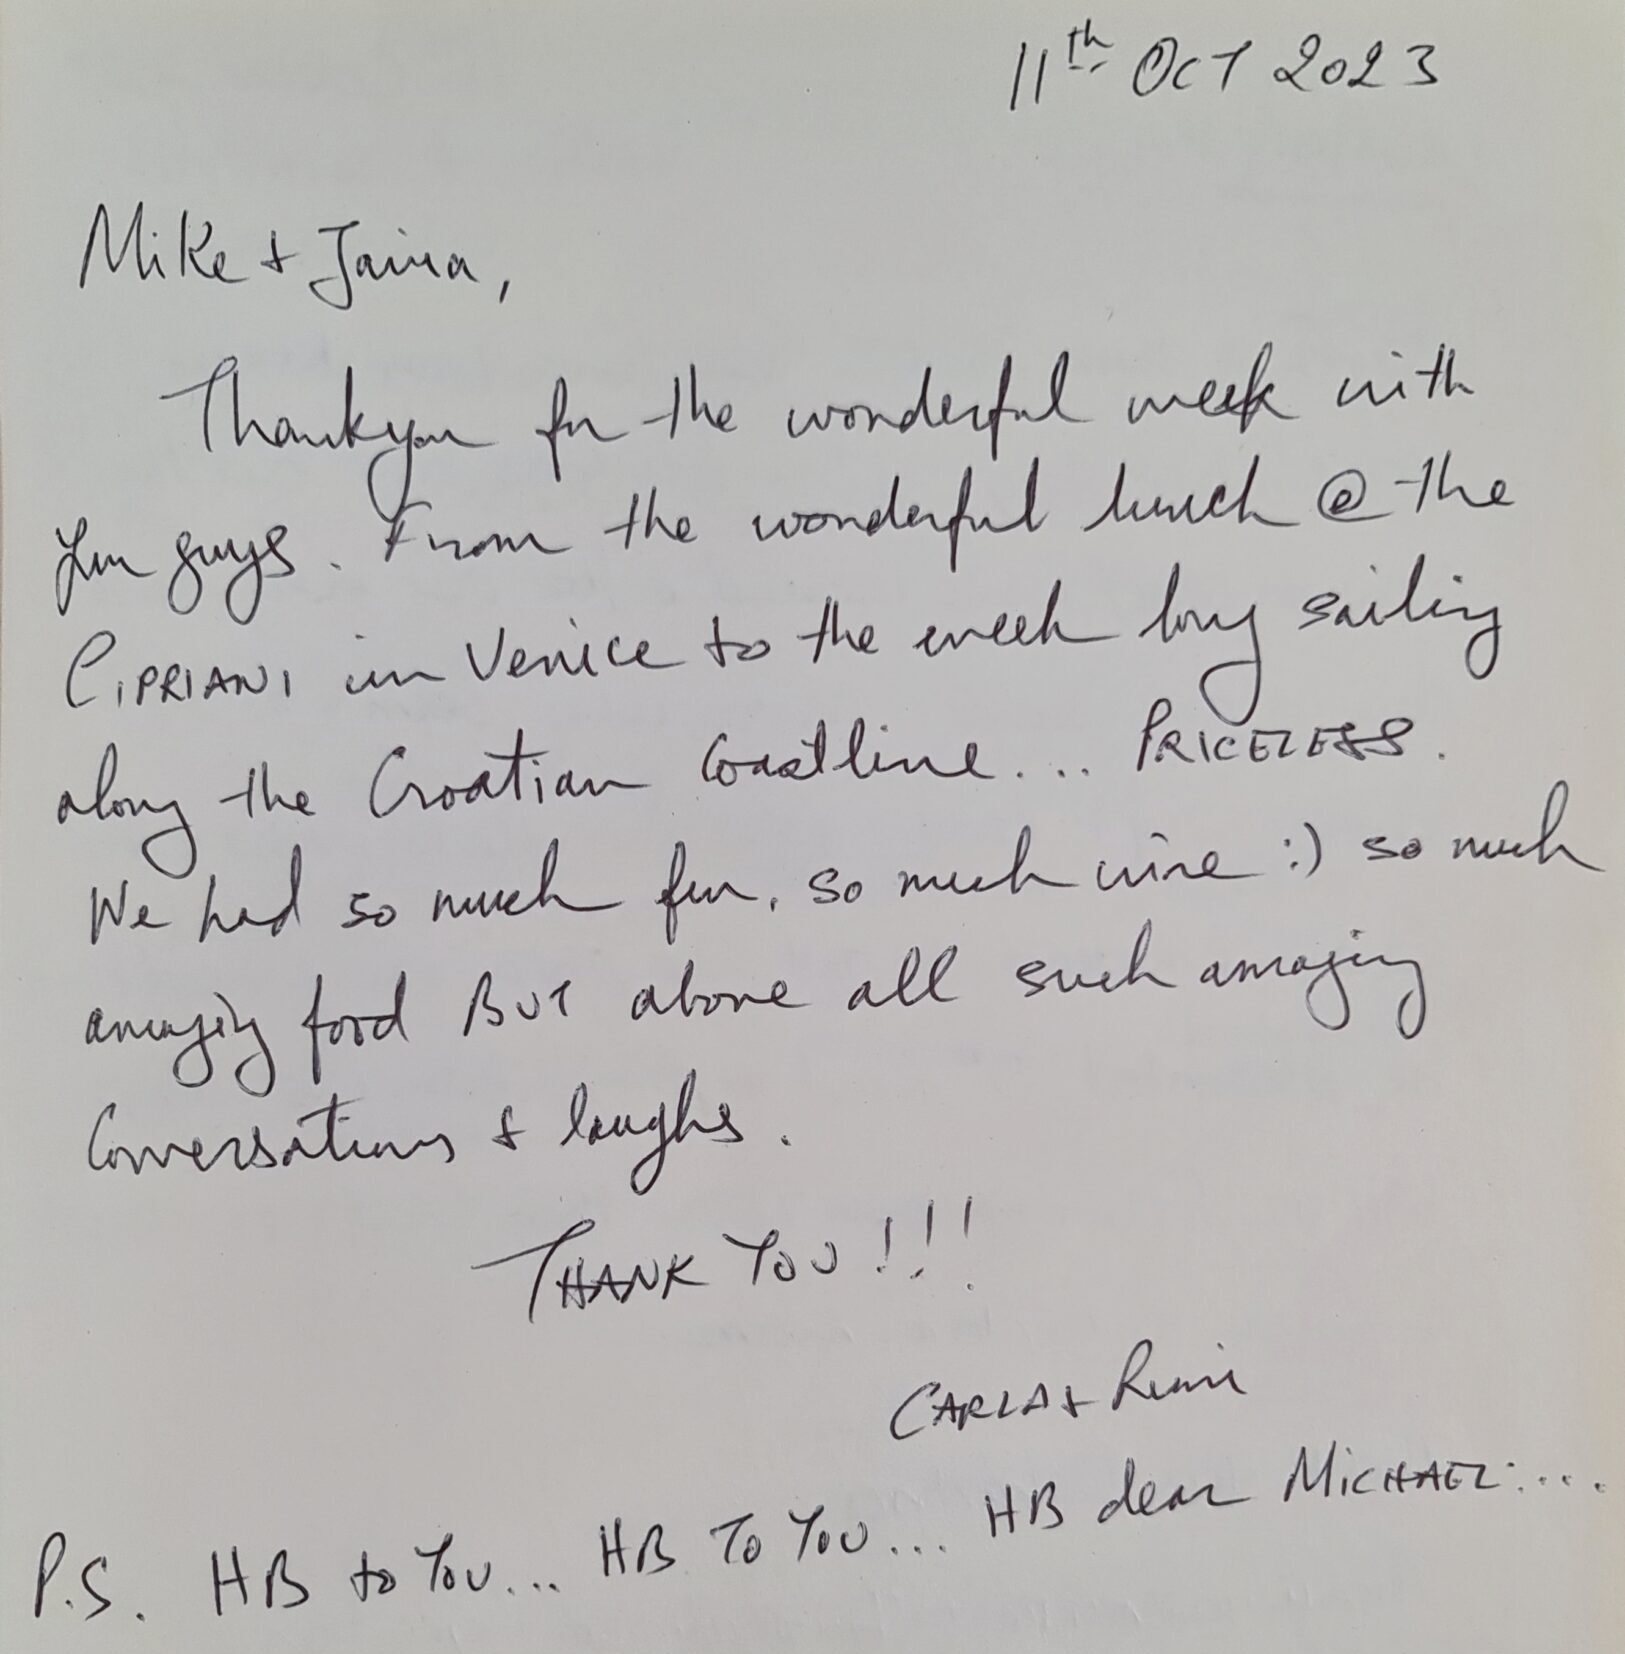 11th OCT 2023
Mike + Jaina,
Thankyou for the wonderful week with
you guys. From the wonderful lunch @ the
CIPRIANI in Venice to the week long sailing
along the Croatian Coastline... PRICELESS.
We had so much fun, so much wine :) so much
amazing food BUT above all such amazing
Conversations & laughs.
THANK YOU!!!
CARLA +
P.S. HB to You... HB To You... HB dear MICHAEL....